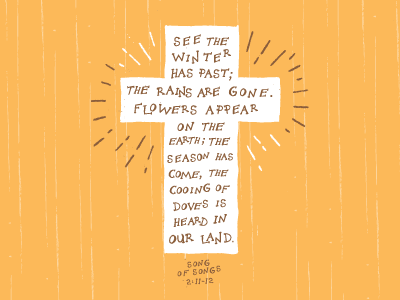 SEE THE
WINTER
HAS PAST;
THE RAINS ARE GONE.
FLOWERS APPEAR
ON THE
EARTH; THE
SEASON HAS
COME, THE
COOING OF
DOVES IS
HEARD IN
OUR LAND.
SONG
OF SONGS
2:11-12